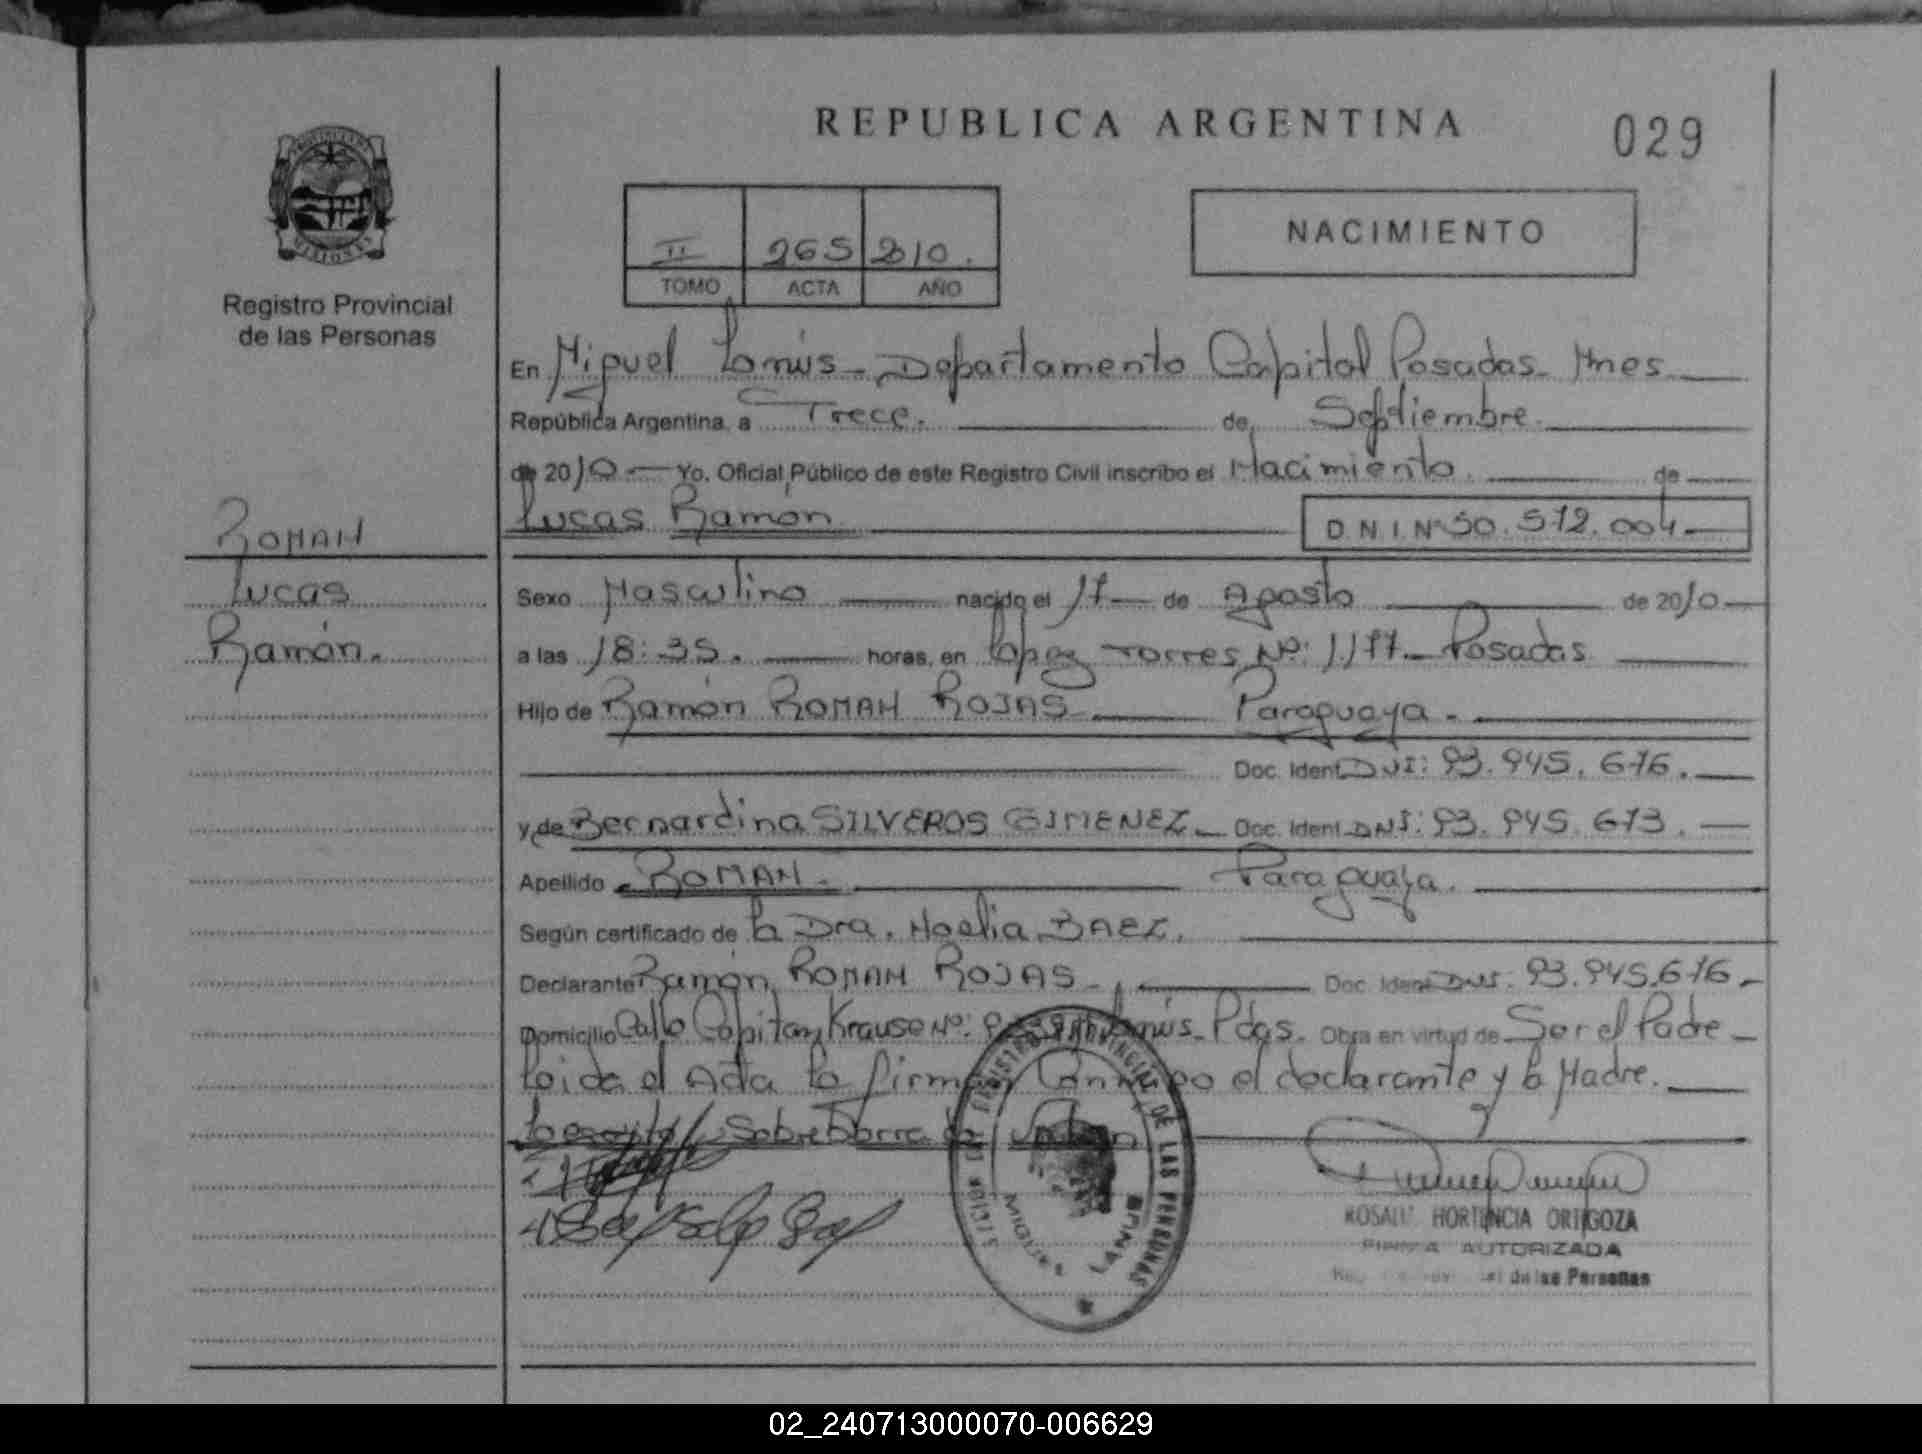 REPUBLICA ARGENTINA
029
PROVINCIA DE
MISIONES
Registro Provincial
de las Personas
II 265 2010.
TOMO ACTA AÑO
NACIMIENTO
En Miguel Lanús - Departamento Capital Posadas - Mnes
República Argentina, a Trece. de Septiembre.
de 2010 Yo, Oficial Público de este Registro Civil inscribo el Nacimiento. de
Lucas Ramón
D.N.I. Nº 50.572.004.-
ROMAN
Lucas
Ramón.
Sexo Masculino nacido el 17 de Agosto de 2010
a las 18:35. horas, en López Torres Nº: 1177.- Posadas
Hijo de Ramón ROMAN ROJAS Paraguaya.
Doc. Ident. DNI: 93.945.676.
y de Bernardina SILVEROS GIMENEZ Doc. Ident. DNI: 93.945.673.
Apellido ROMAN. Paraguaya.
Según certificado de la Dra. Noelia BAEZ.
Declarante Ramón ROMAN ROJAS Doc. Ident. DNI: 93.945.676.-
Domicilio Calle Capitan Krause Nº: Lanús - Pdas. Obra en virtud de Ser el Padre
Leida el Acta la firman Conmigo el declarante y la Madre.
Sobre Borrado
REGISTRO PROVINCIAL DE LAS PERSONAS
MIGUEL LANUS
HORTENCIA ORTIGOZA
FIRMA AUTORIZADA
de las Personas
02_240713000070-006629